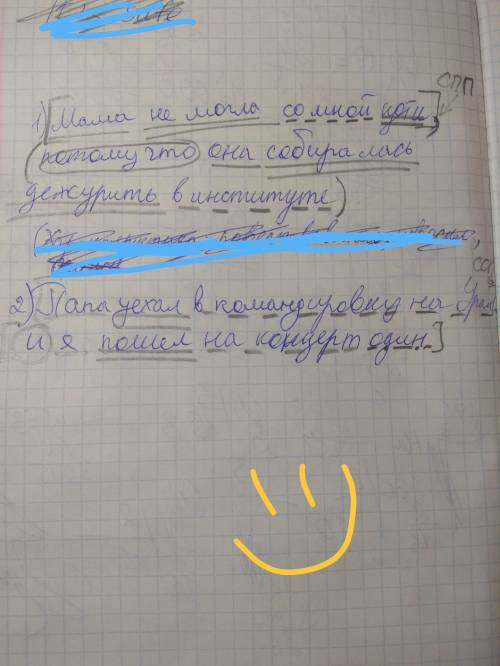 СПП
1) [Мама не могла со мной идти],
(потому что она собиралась
дежурить в институте)
2) [Папа уехал в командировку на Урал
и я пошел на концерт один.]